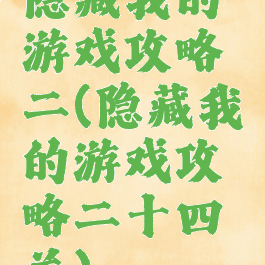 隐藏我的
游戏攻略
二(隐藏我
的游戏攻
略二十四
关)